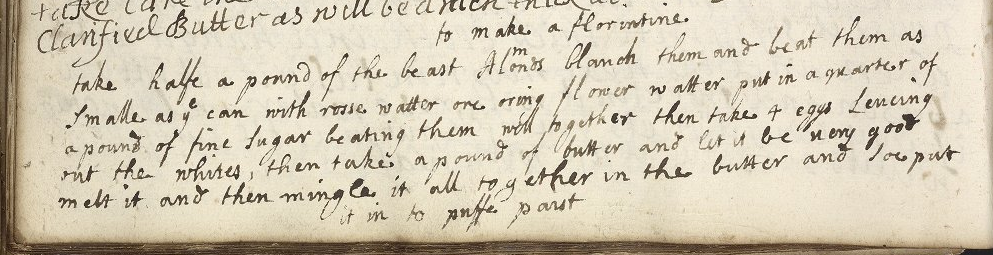 take Care
Clarified Butter as will be a
to make a florintine
take halfe a pound of the beast Almonds blanch them and beat them as
Smalle as ye can with rosse watter ore oring flower watter put in a quarter of
a pound of fine Sugar beating them well together then take 4 eggs Leveing
out the whites, then take a pound of butter and let it be very good
melt it and then mingle it all together in the butter and soe put
it in to puffe past